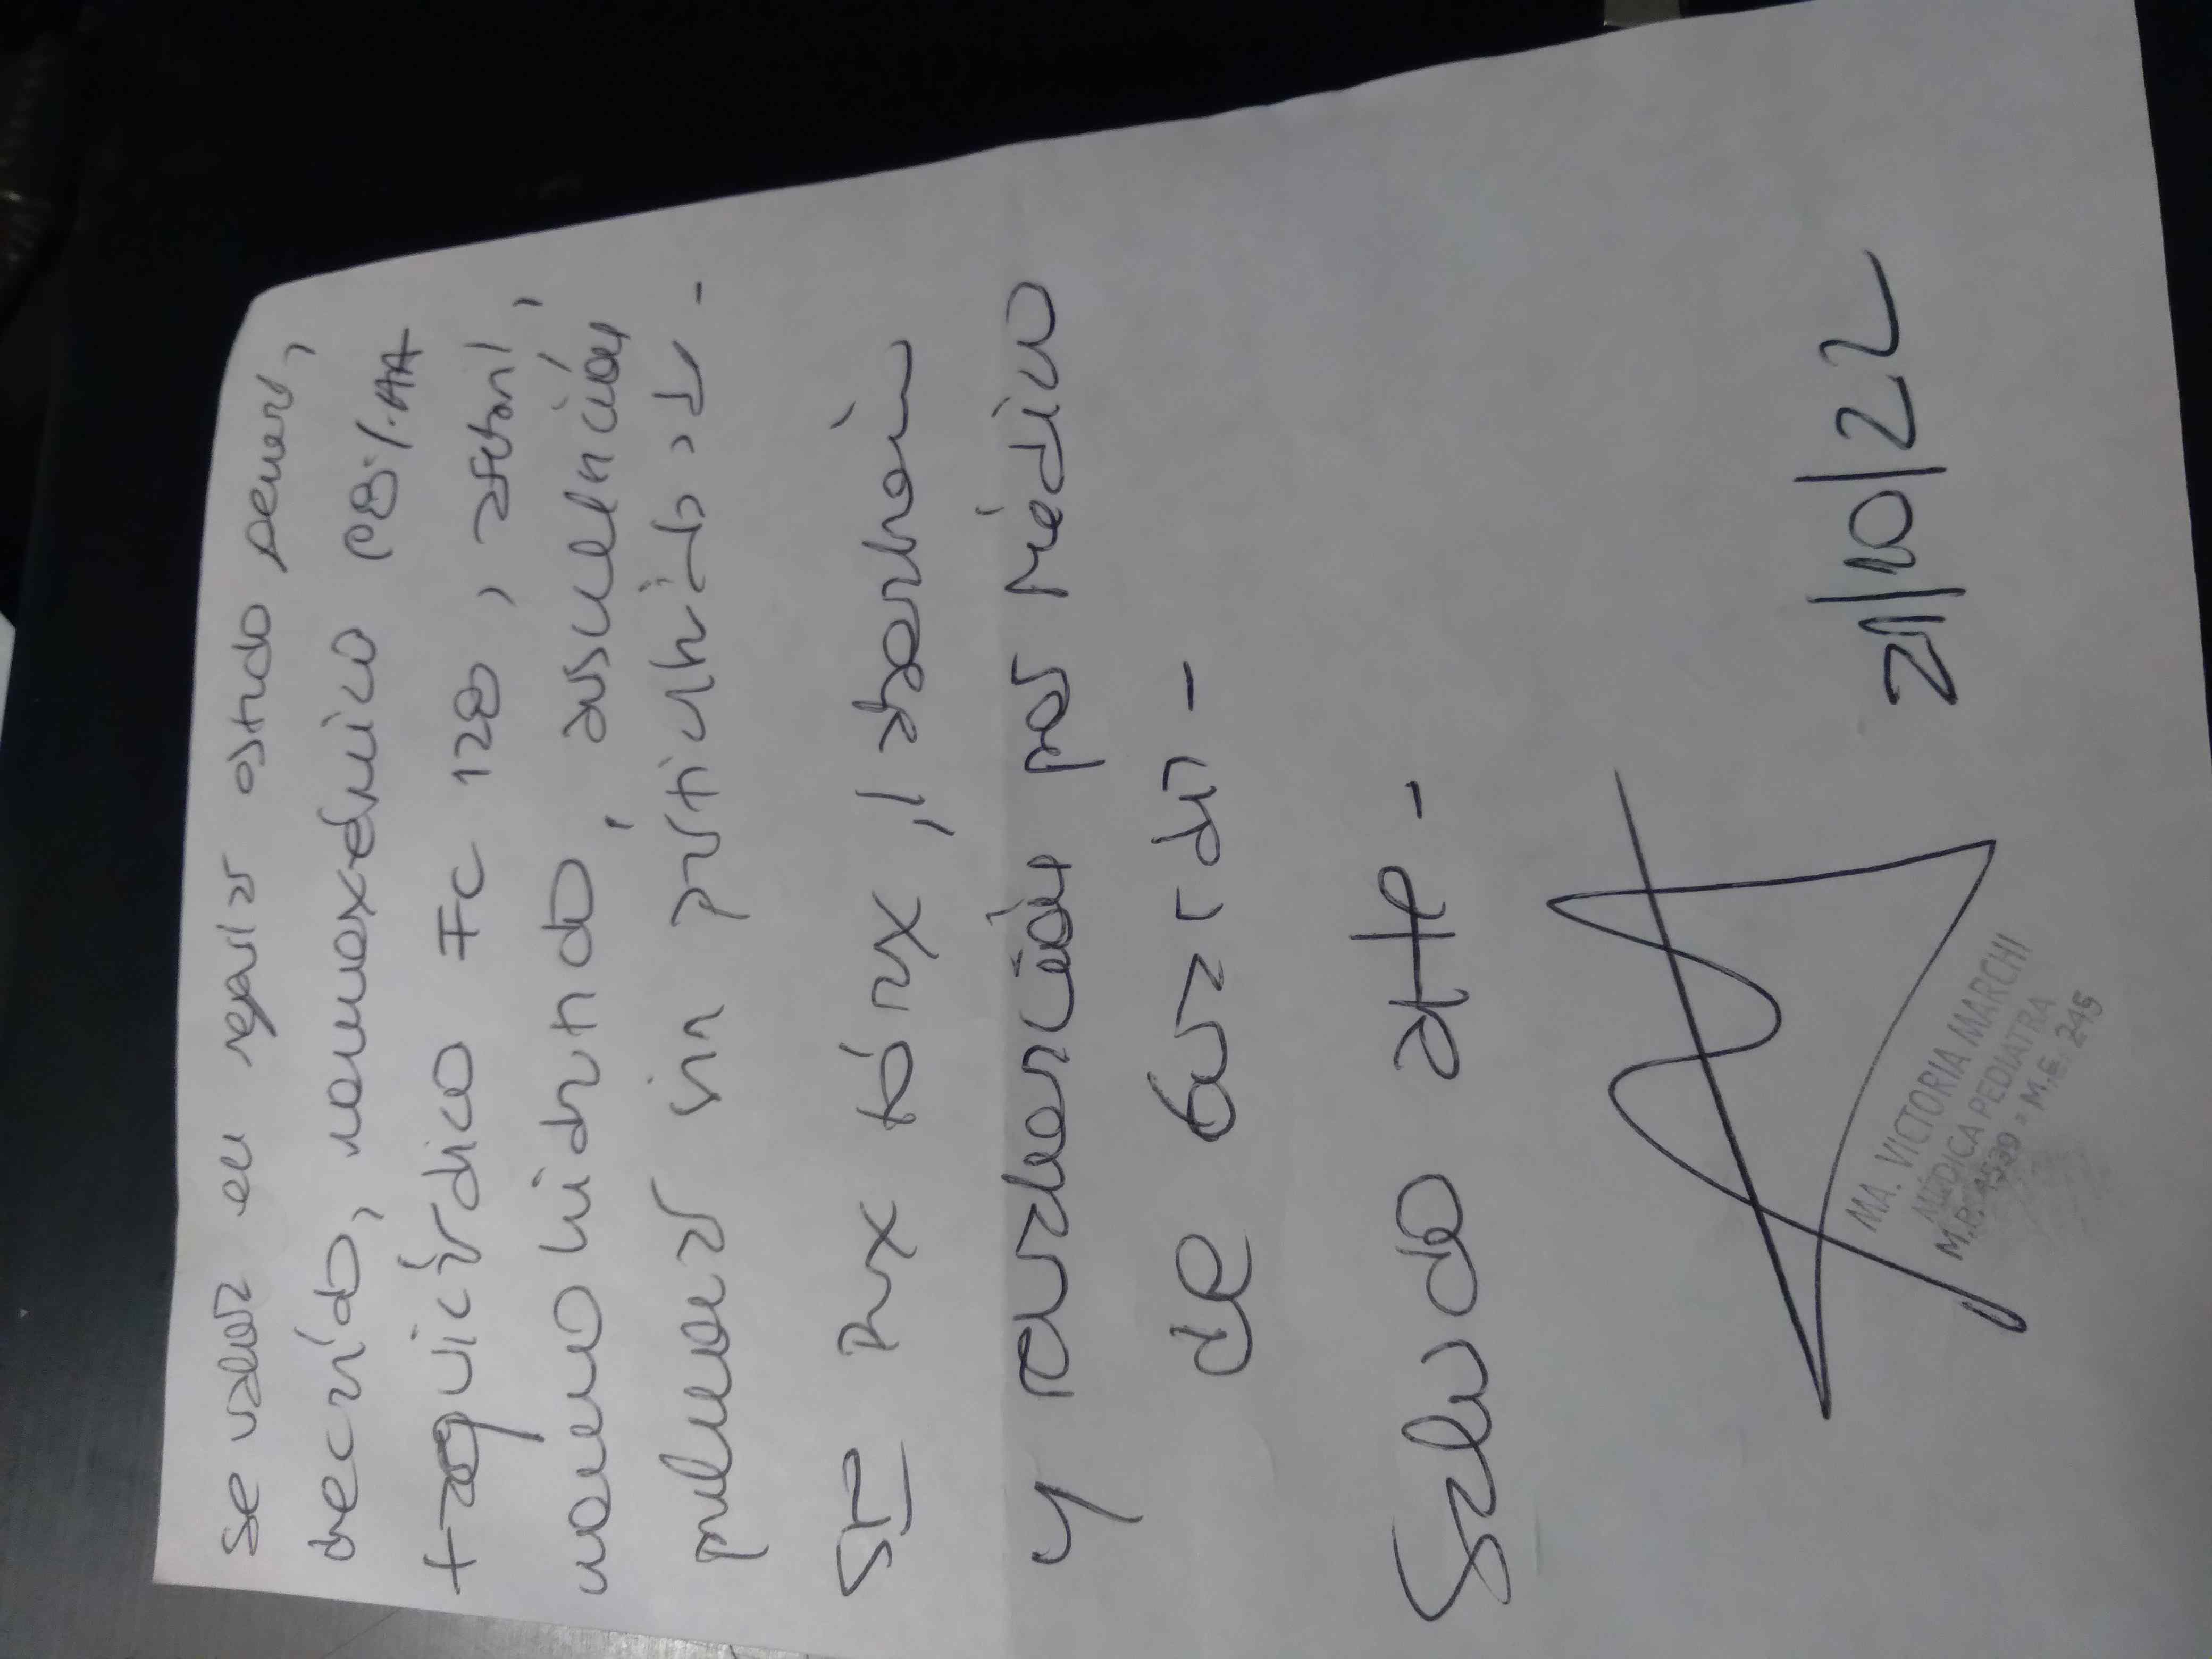 Se valora en regular estado general,
decaído, normoxémico 98% AA
taquicárdico FC 120, afebril,
normohidratado, auscultación
pulmonar sin particularidad -
SE Rx tórax, laboratorio
y revaloración por Médico
de Guardia -
Saludo atte -
21/10/22
MA. VICTORIA MARCHI
MÉDICA PEDIATRA
M.E. 245